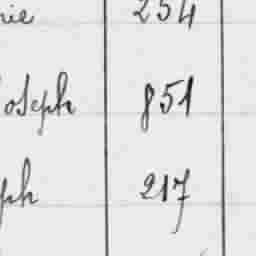 nie 254
Joseph 851
ph 217